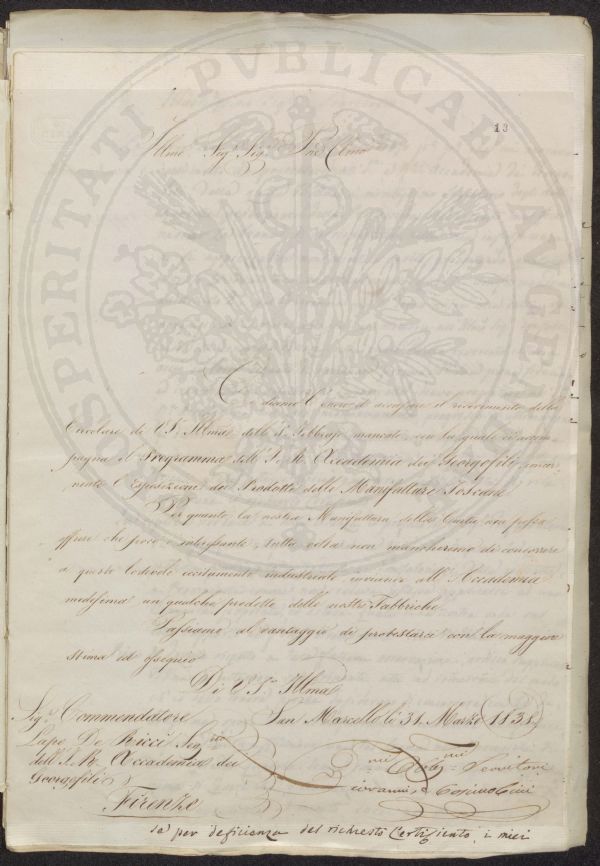 13
Illmo Sig. Sig. Pne Clmo
Ci diamo l'onore di accusare il ricevimento della
Circolare di V. S. Illma delli 8. Febbrajo mancato, con la quale ci accom-
pagna il Programma dell' I. R. Accademia dei Georgofili, concer-
nente l'Esposizione dei Prodotti delle Manifatture Toscane
Per quanto la nostra Manifattura della Carta non possa
offrire che poco interessante, tutta volta non mancheremo di concorrere
a questo lodevole eccitamento industriale inviando all' Accademia
medesima un qualche prodotto delle nostre Fabbriche.
Passiamo al vantaggio di protestarci con la maggiore
stima ed ossequio
Di V. S. Illma
Sig. Commendatore
San Marcello li 31. Marzo 1838.
Lapo De Ricci Seg.rio
dell' I. R. Accademia dei
Georgofili
Firenze
Servitori
Giovanni e Cosimo Cini
sa per deficienza del richiesto Certificato, i miei
PROSPERITATI PUBLICAE AUGEN